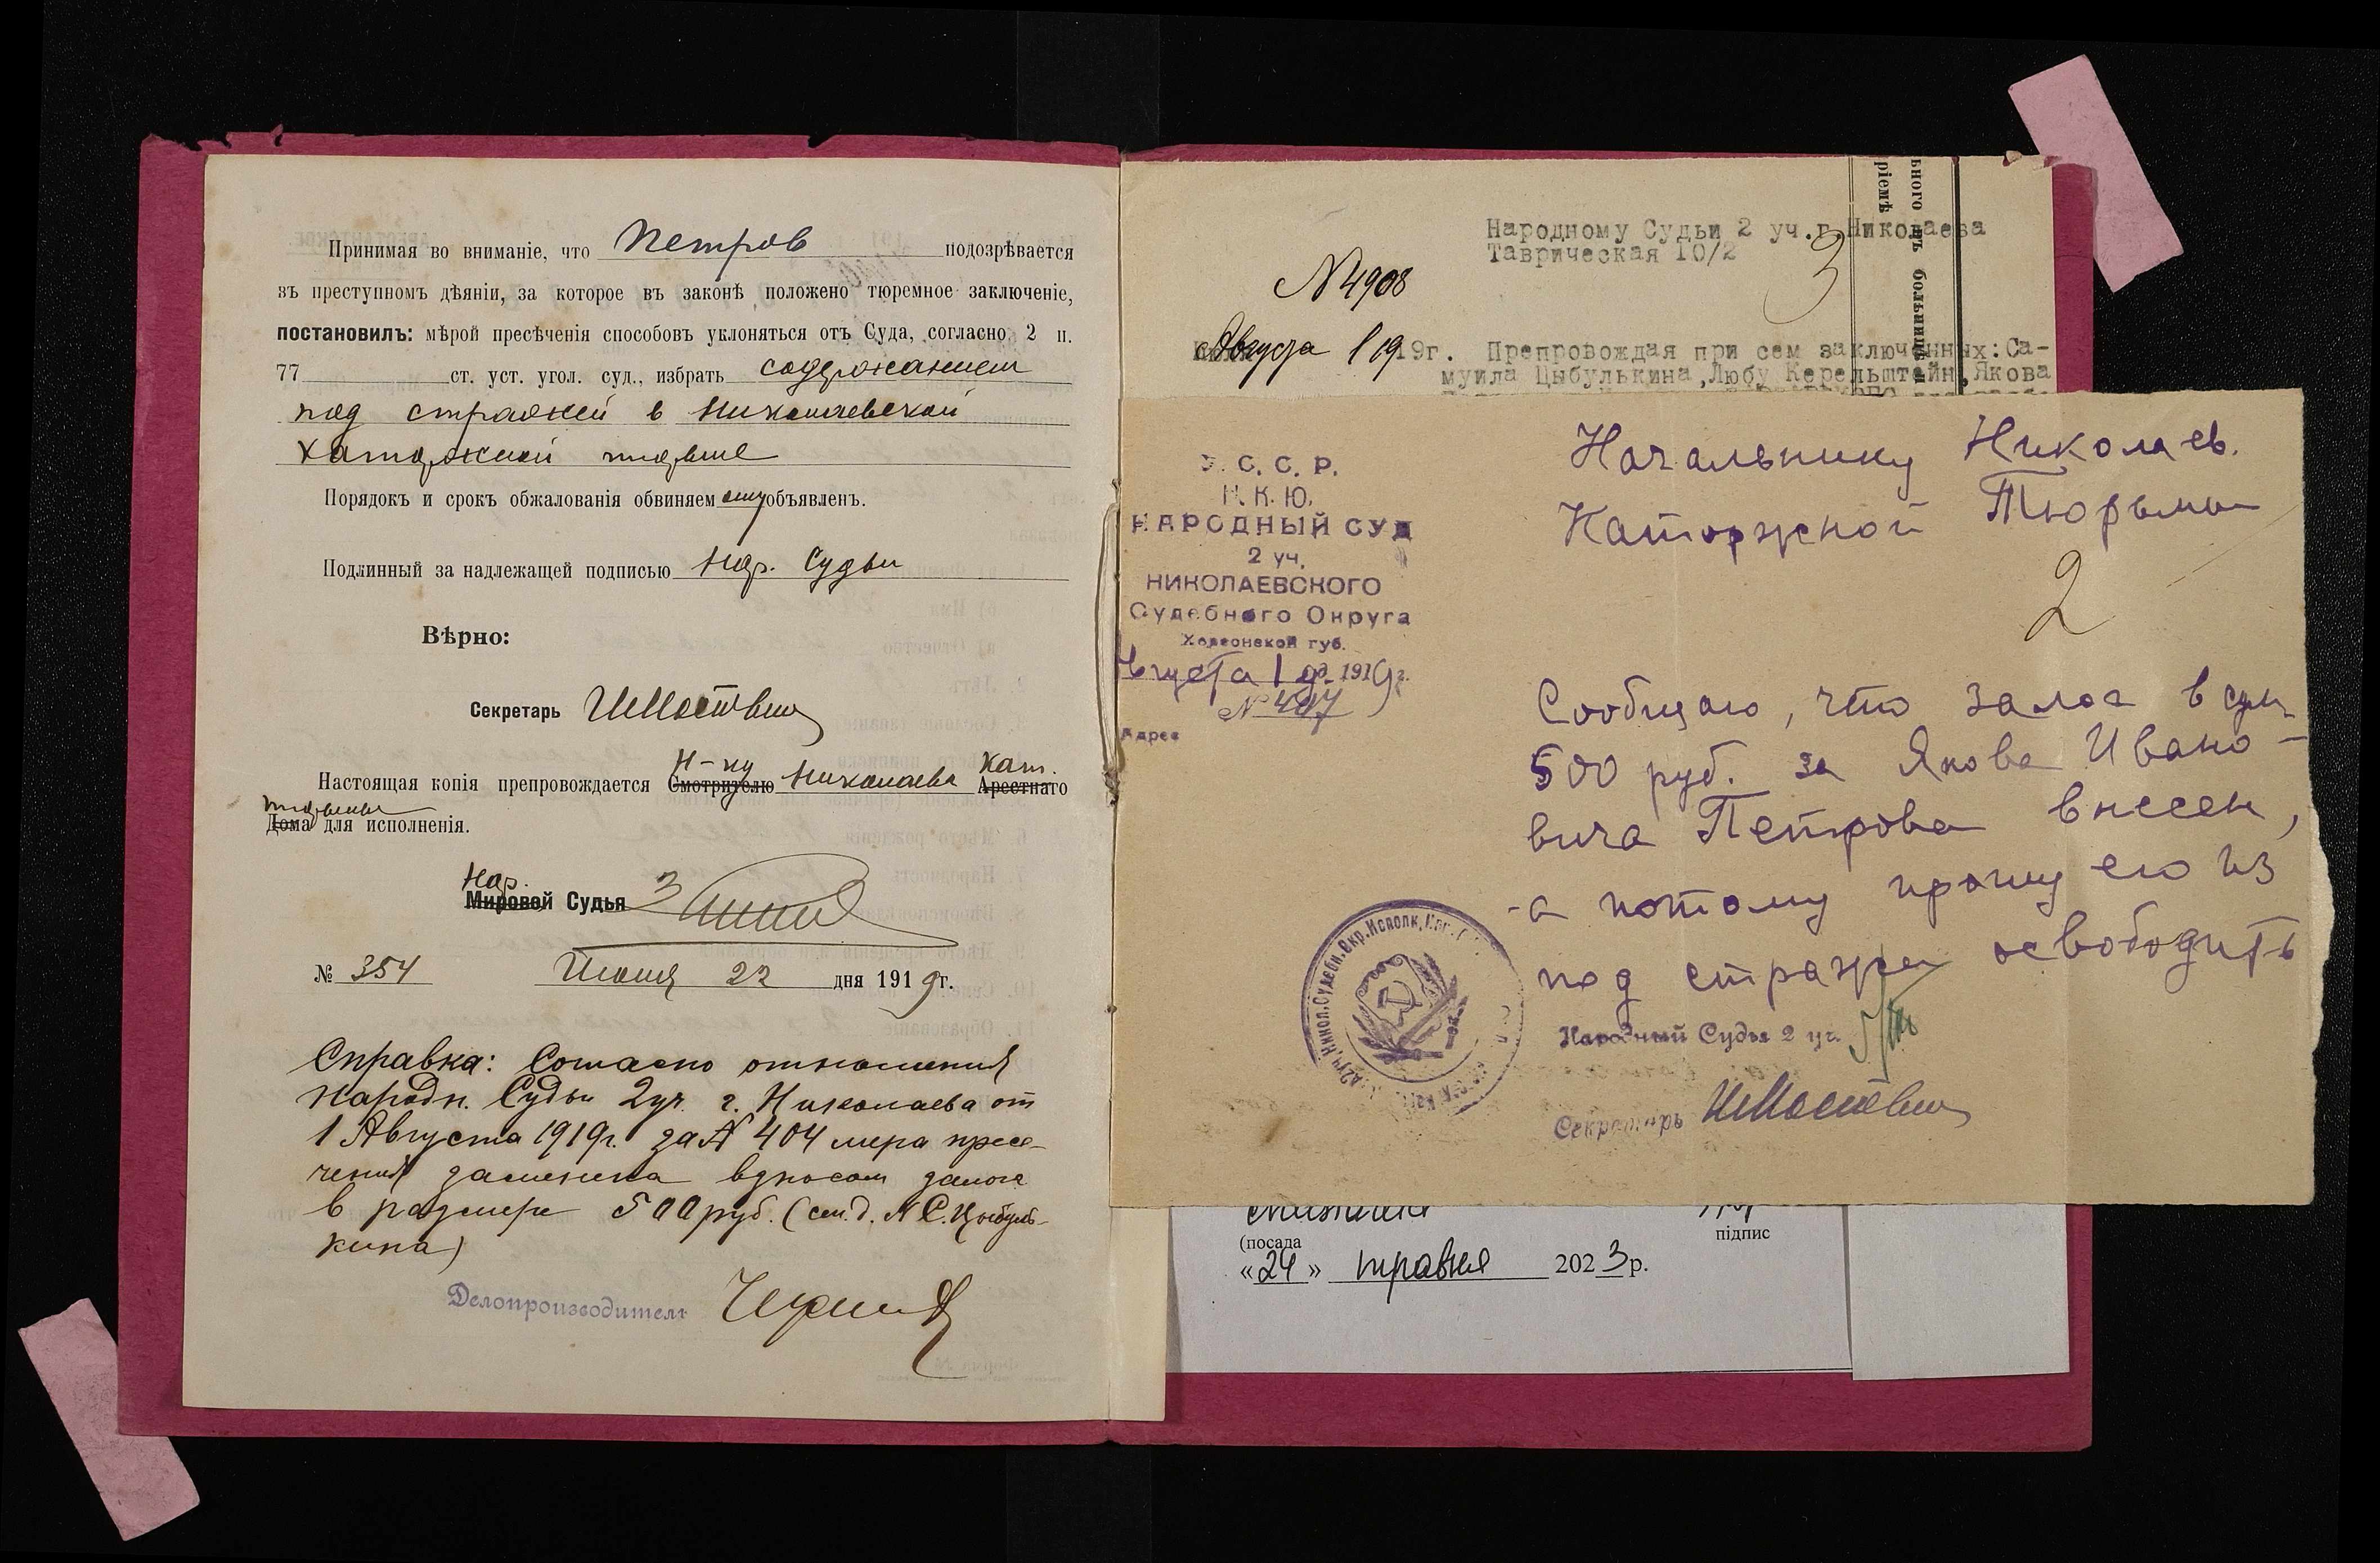 Принимая во вниманіе, что Петров подозрѣвается
въ преступномъ дѣяніи, за которое въ законѣ положено тюремное заключеніе,
постановилъ: мѣрой пресѣченія способовъ уклоняться отъ Суда, согласно 2 п.
77 ст. уст. угол. суд., избрать содержанием
под стражей в Николаевской
Каторжной тюрьме
Порядокъ и срокъ обжалованія обвиняем ому объявленъ.
Подлинный за надлежащей подписью Нар. Судьи
Вѣрно:
Секретарь
Н-ку Кат.
Настоящая копія препровождается Смотрителю Николаева Арестнаго
тюрьмы
Дома для исполненія.
Нар.
Мировой Судья
№ 354 Июня 22 дня 1919г.
Справка: Согласно отношения
Народн. Судьи 2 уч. г. Николаева от
1 Августа 1919г. за № 404 мера пресе-
чения заменена взносом залога
в размере 500 руб. (см. д. № С. Цыбуль-
кина)
Делопроизводитель
Народному Судьи 2 уч.г.Николаева
Таврическая 10/2
3
№4908
Августа 1 19 19г. Препровождая при сем заключенных:Са-
муила Цыбулькина,Любу Керельштейн,Якова
ріемѣ
ьного
больницы
С. С. Р.
Н. К. Ю.
НАРОДНЫЙ СУД
2 уч.
НИКОЛАЕВСКОГО
Судебного Округа
Херсонской губ.
Августа 1 д. 1919г.
№
Адрес
Начальнику Николаев.
Каторжной Тюрьмы
2
Сообщаю, что залог в сум.
500 руб. за Якова Ивано-
вича Петрова внесен,
а потому прошу его из
под стражи освободить
Народный Судья 2 уч.
Секретарь
(посада
підпис
«24» травня 2023р.